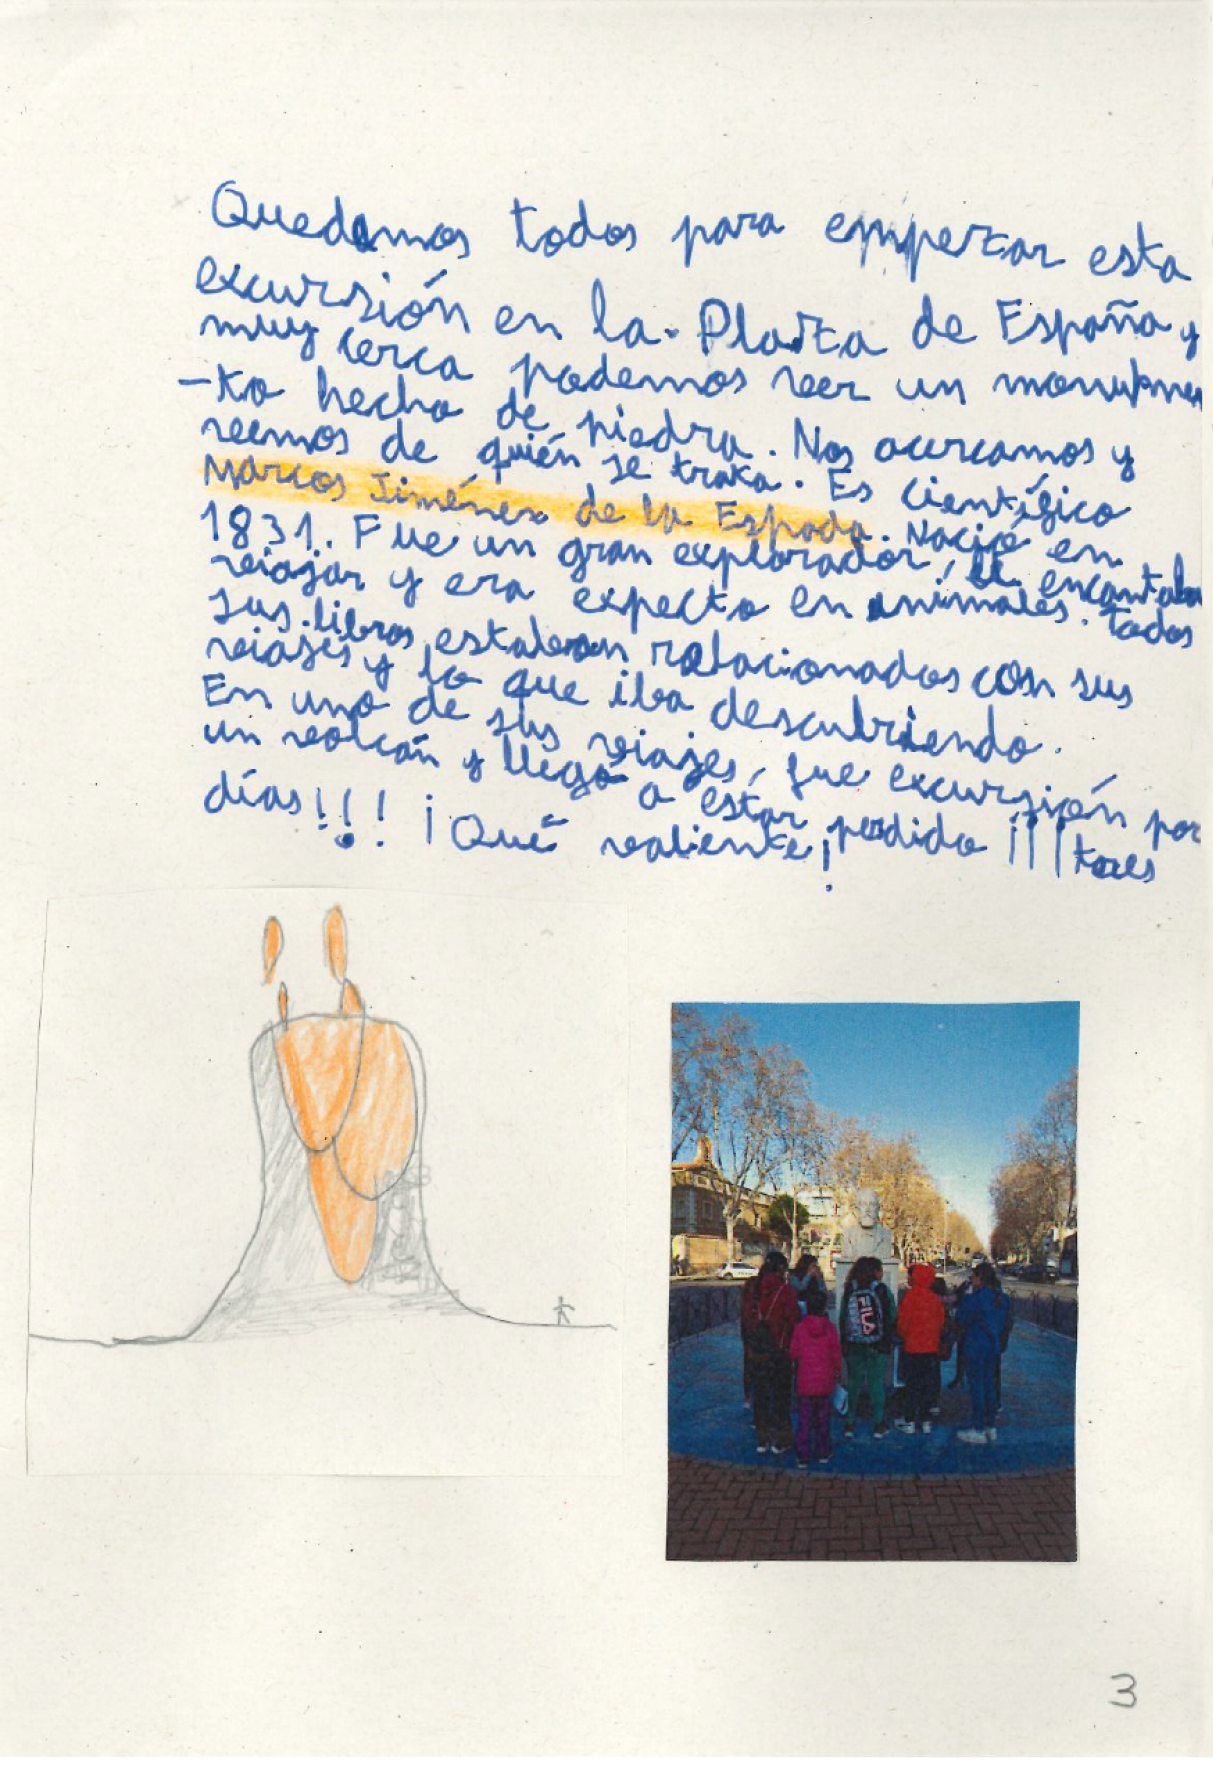 Quedamos todos para empezar esta
excursión en la Plaza de España y
muy cerca podemos veer un monumen
-to hecho de piedra. Nos acercamos y
veemos de quién se trata. Es científico
Marcos Jiménez de la Espada. Nació en
1831. Fue un gran explorador, le encantaba
viajar y era expecto en animales. Todos
sus libros estaban relacionados con sus
viajes y lo que iba descubriendo.
En uno de sus viajes, fue excursión por
un volcán y llegó a estar perdido ¡¡¡tres
días!!! ¡Qué valiente!
FILA
3